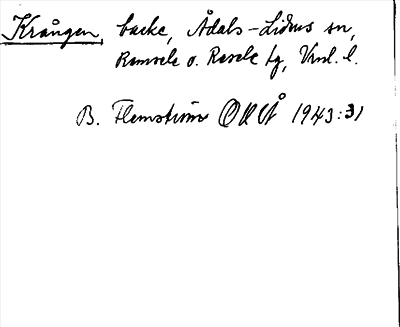 Krången, backe, Ådals-Lidens sn,
Ramsele o. Resele tg, Vnl. l.
B. Flemström OKÅ 1943:31